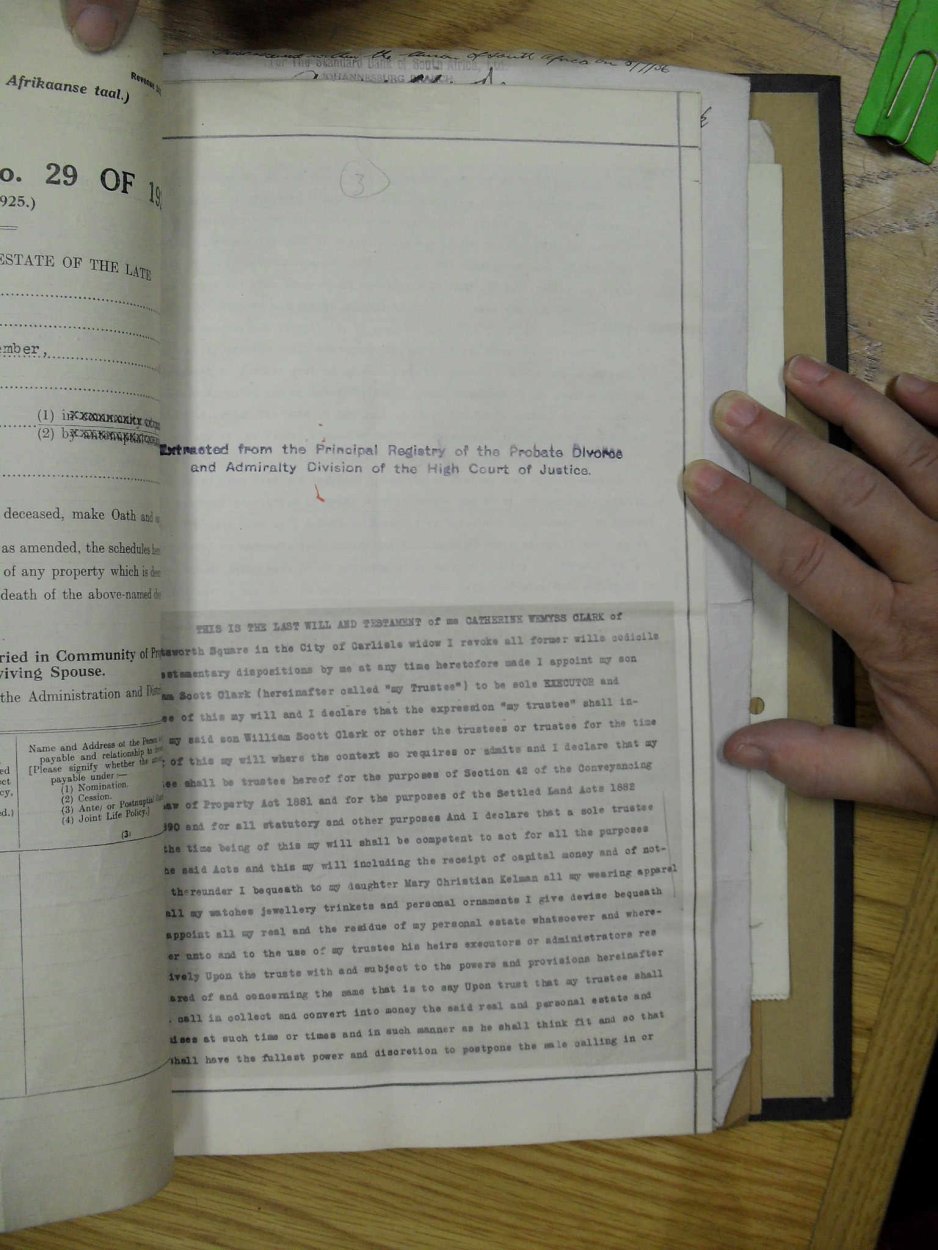 Afrikaanse taal.)
o. 29 OF 19
925.)
ESTATE OF THE LATE
ember,
(1) in
(2) by
deceased, make Oath and
as amended, the schedules
of any property which is
death of the above-named
ried in Community of
viving Spouse.
the Administration and
Name and Address of the Person
payable and relationship to
[Please signify whether the
payable under:—
(1) Nomination.
(2) Cession.
(3) Ante/ or Postnuptial
(4) Joint Life Policy.]
(3)
For The Standard Bank of South Africa,
JOHANNESBURG BRANCH
3
Extracted from the Principal Registry of the Probate Divorce
and Admiralty Division of the High Court of Justice.
THIS IS THE LAST WILL AND TESTAMENT of me CATHERINE WEMYSS CLARK of
tsworth Square in the City of Carlisle widow I revoke all former wills codicils
stamentary dispositions by me at any time heretofore made I appoint my son
am Scott Clark (hereinafter called "my Trustee") to be sole EXECUTOR and
ee of this my will and I declare that the expression "my trustee" shall in-
my said son William Scott Clark or other the trustees or trustee for the time
of this my will where the context so requires or admits and I declare that my
ee shall be trustee hereof for the purposes of Section 42 of the Conveyancing
aw of Property Act 1881 and for the purposes of the Settled Land Acts 1882
890 and for all statutory and other purposes And I declare that a sole trustee
the time being of this my will shall be competent to act for all the purposes
he said Acts and this my will including the receipt of capital money and of not-
thereunder I bequeath to my daughter Mary Christian Kelman all my wearing apparel
all my watches jewellery trinkets and personal ornaments I give devise bequeath
appoint all my real and the residue of my personal estate whatsoever and where-
er unto and to the use of my trustee his heirs executors or administrators res
ively Upon the trusts with and subject to the powers and provisions hereinafter
ared of and concerning the same that is to say Upon trust that my trustee shall
call in collect and convert into money the said real and personal estate and
ises at such time or times and in such manner as he shall think fit and so that
shall have the fullest power and discretion to postpone the sale calling in or